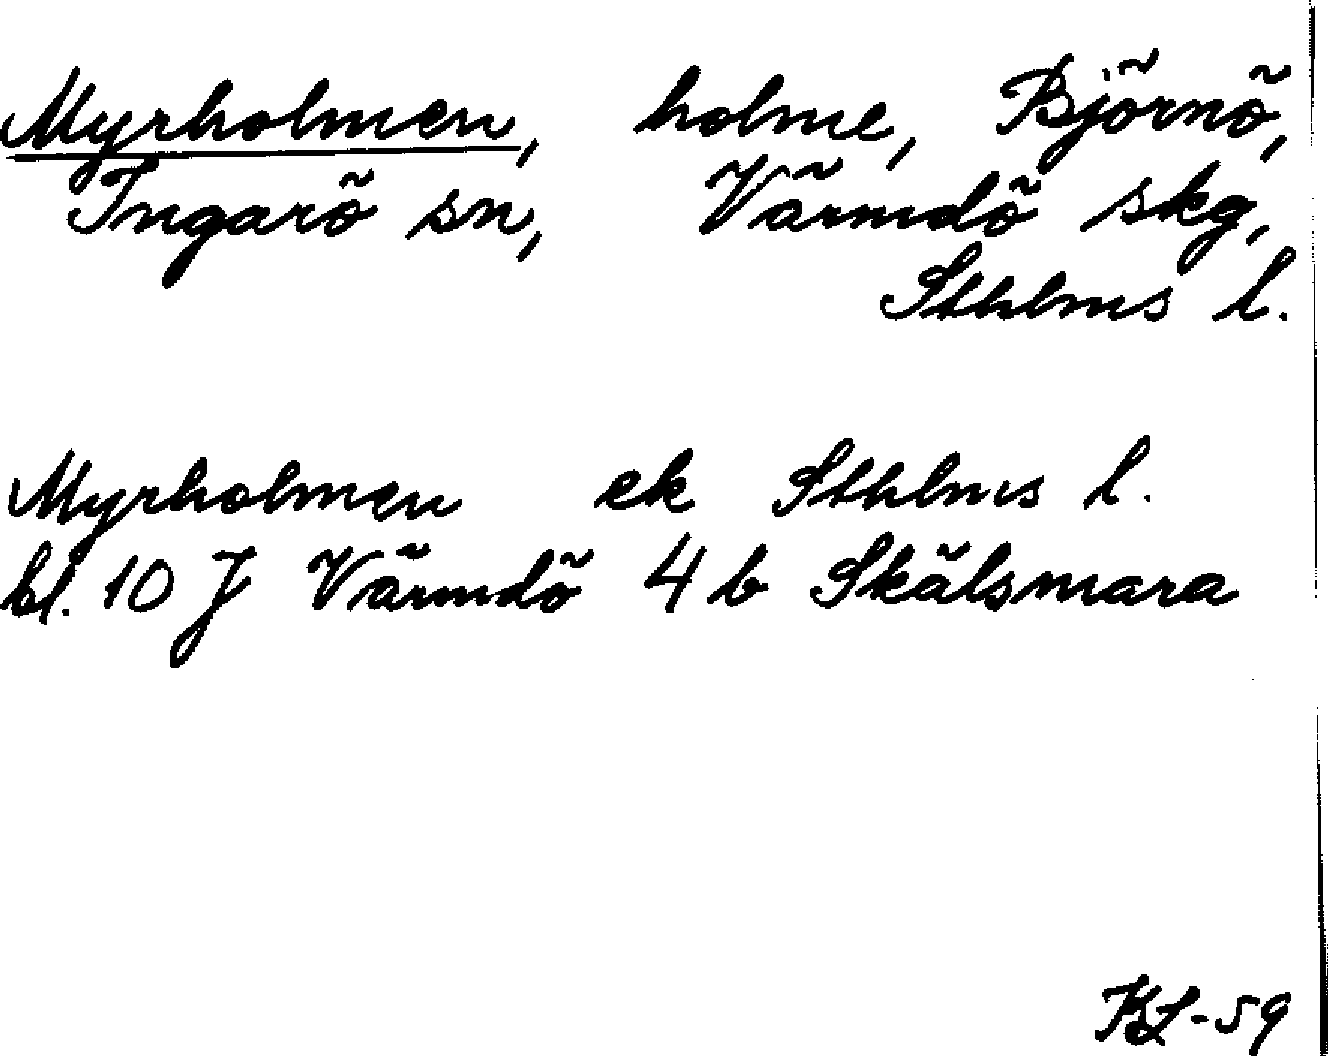 Myrholmen, holme, Björnö,
Ingarö sn, Värmdö skg,
Sthlms l.
Myrholmen ek Sthlms l.
bl. 10 J Värmdö 4 b Skälsmara
KL-59